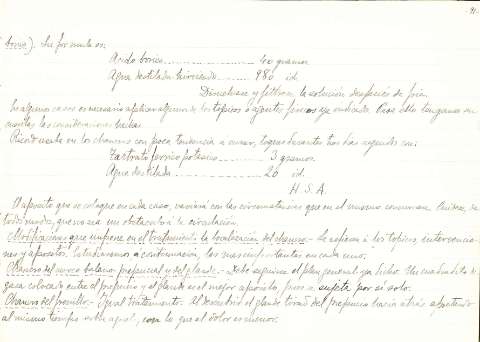 - 91 -
bórico). Su fórmula es:
Acido bórico ............ 40 gramos
Agua destilada hirviendo ...... 980 id.
Disuélvase y fíltrese la solución después de fría.
En algunos casos es necesario aplicar alguno de los tópicos o agentes físicos ya indicados. Para ello tengamos en
cuenta las consideraciones hechas.
Ricord usaba en los chancros con poca tendencia a curar, toques durante tres días seguidos con:
Tartrato férrico potásico ........ 3 gramos
Agua destilada ........ 20 id.
H. S. A.
El apósito que se coloque en cada caso, variará con las circunstancias que en el mismo concurran. Cuídese, de
todos modos, que no sea un obstáculo a la circulación.
Modificaciones que impone en el tratamiento la localización del chancro.- Se refieren a los tópicos, intervencio-
nes y apósitos. Estudiaremos a continuación, las más importantes en cada uno.
Chancro del surco balano prepucial y del glande.- Debe seguirse el plan general ya dicho. Un cuadradito de
gasa colocado entre el prepucio y el glande es el mejor apósito, pues se sujeta por si solo.
Chancro del frenillo.- Igual tratamiento. Al descubrir el glande tirar del prepucio hacia atrás
al mismo tiempo, con lo que el dolor es menor.